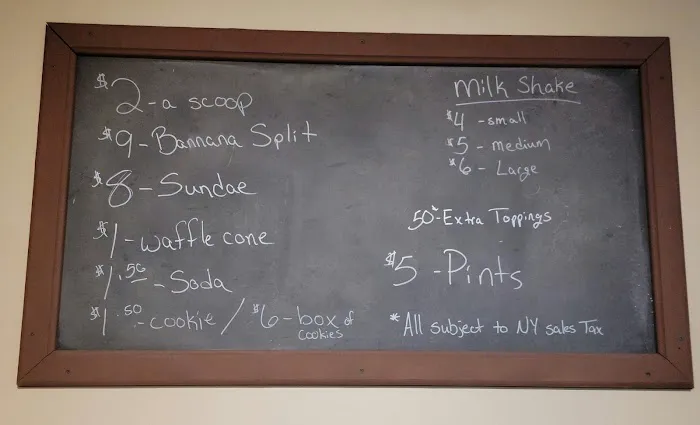 $2 - a scoop
$9 - Bannana Split
$8 - Sundae
$1 - waffle cone
$1.50 - Soda
$1.50 - cookie / $6 - box of cookies
Milk Shake
$4 - small
$5 - medium
$6 - Large
50¢ - Extra Toppings
$5 - Pints
* All subject to NY sales Tax